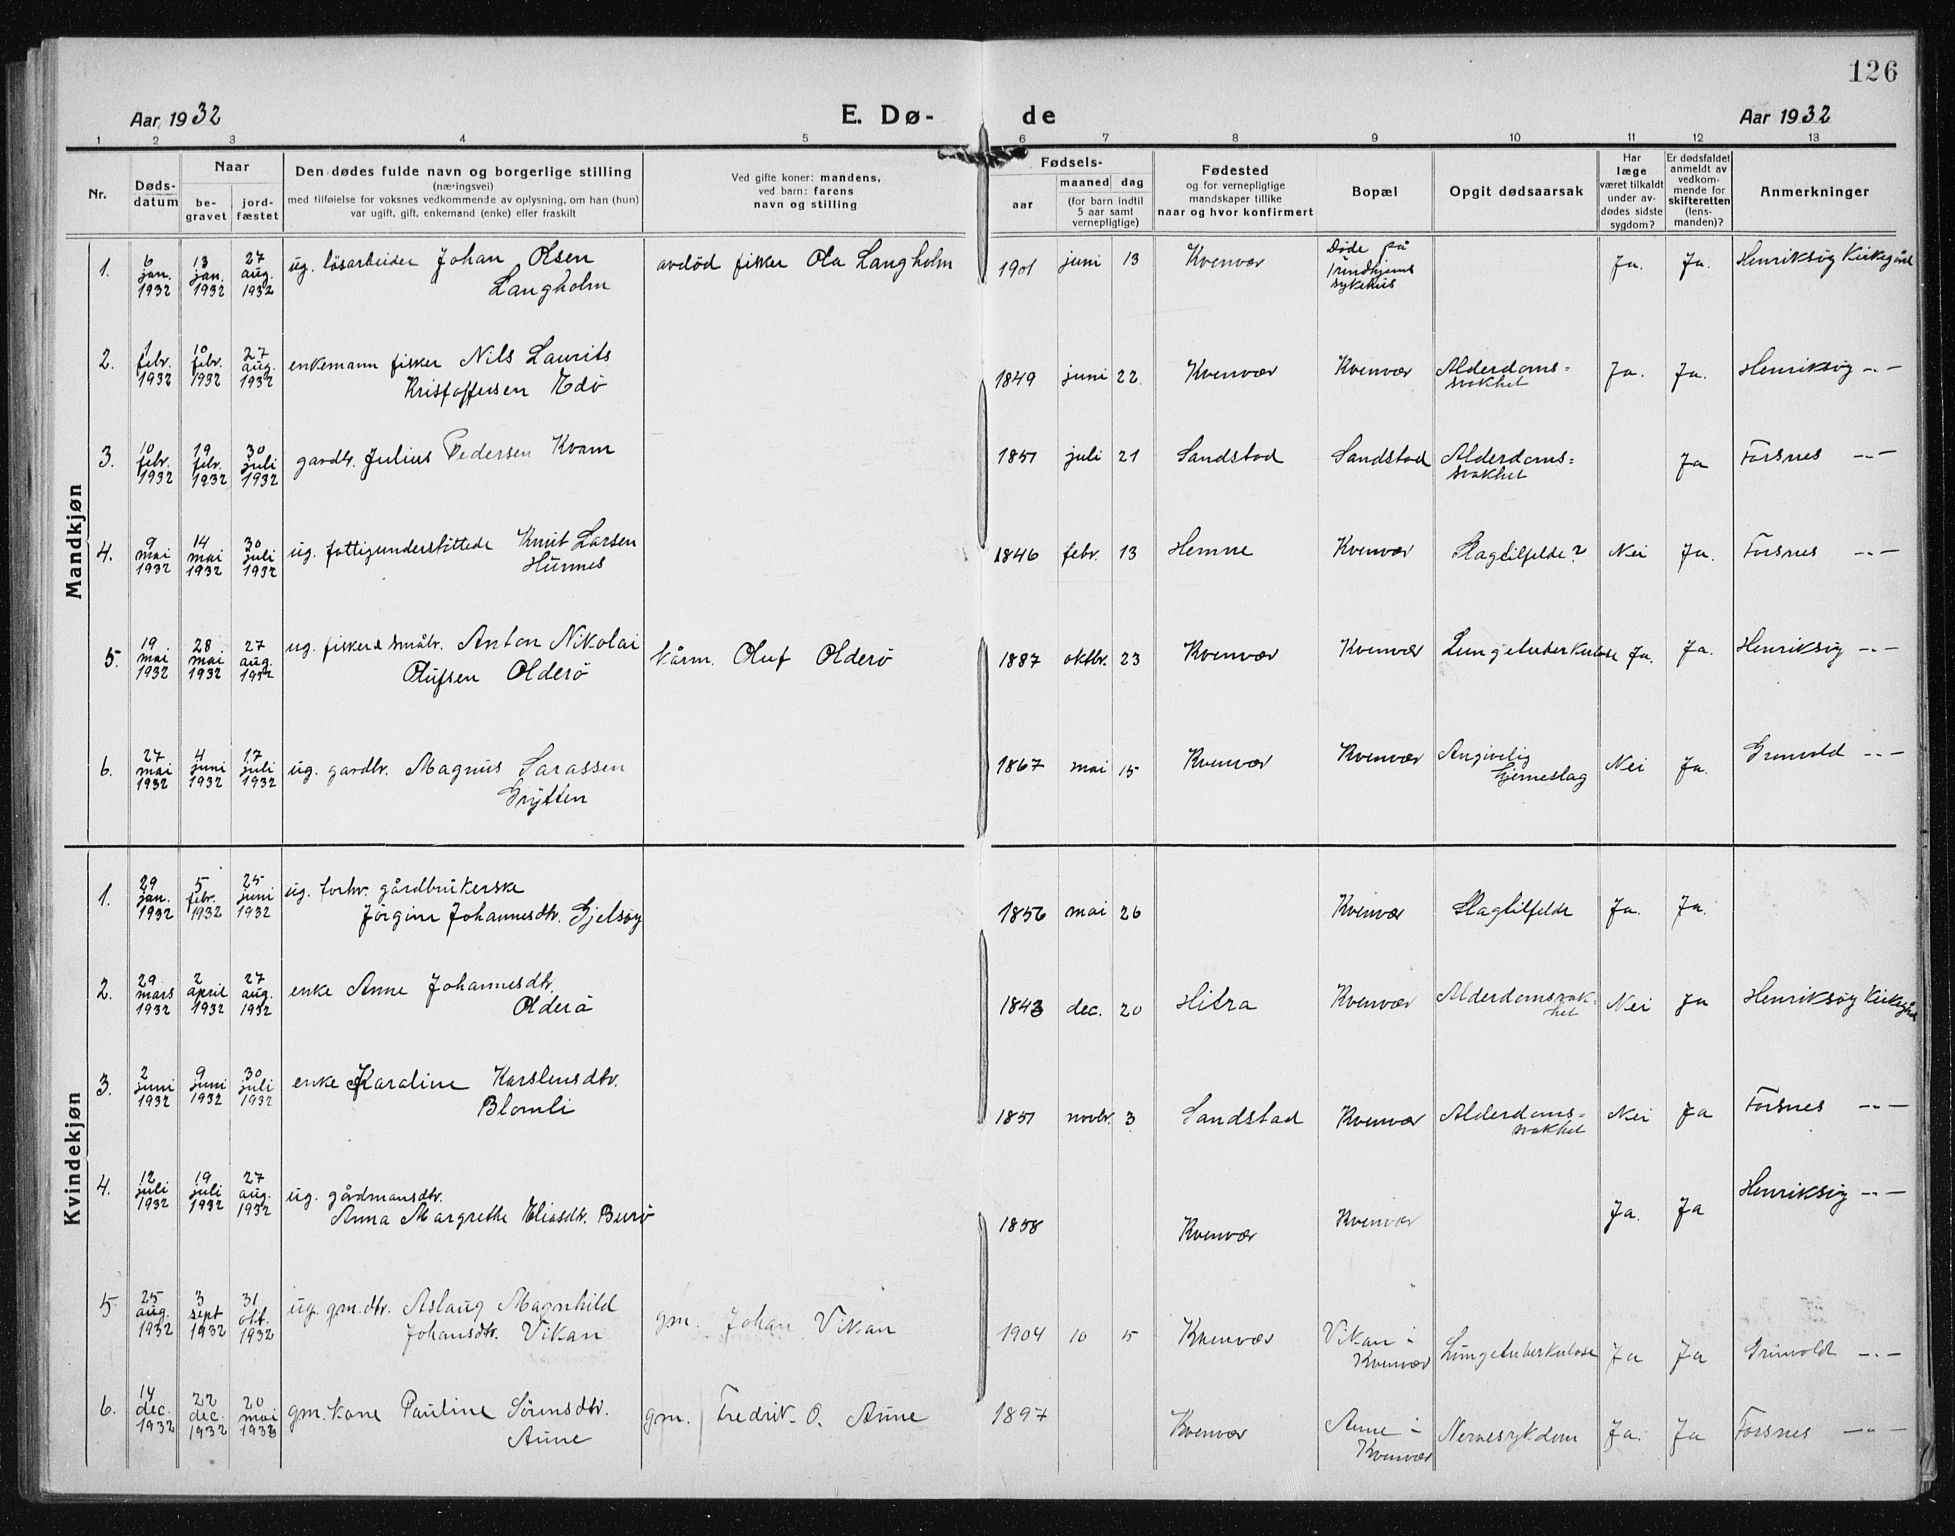 126
Aar 1932 E. Dø- de Aar 1932
1 2 3 4 5 6 7 8 9 10 11 12 13
Nr.
Døds-
datum
Naar
be-
gravet
jord-
fæstet
Den dødes fulde navn og borgerlige stilling
(næringsvei)
med tilføielse for voksnes vedkommende av oplysning, om han (hun)
var ugift, gift, enkemand (enke) eller fraskilt
Ved gifte koner: mandens,
ved barn: farens
navn og stilling
Fødsels-
aar
maaned dag
(for barn indtil
5 aar samt
vernepligtige)
Fødested
og for vernepligtige
mandskaper tillike
naar og hvor konfirmert
Bopæl
Opgit dødsaarsak
Har
læge
været tilkaldt
under av-
dødes sidste
sygdom?
Er dødsfaldet
anmeldt av
vedkom-
mende for
skifteretten
(lens-
manden)?
Anmerkninger
Mandkjøn
1. 6 jan. 1932 13 jan. 1932 27 aug. 1932 ug. løsarbeider Johan Olsen avdød fisker Ola Langholm 1901 juni 13 Kvenvær Døde på Ja. Ja. Henriksøy Kirkegård
Langholm Trondhjems
sykehus
2. 1 febr. 1932 10 febr. 1932 27 aug. 1932 enkemann fisker Nils Laurits 1849 juni 22. Kvenvær Kvenvær Alderdoms= Ja. Ja. Henriksøy -"-
Kristoffersen Edø svakhet
3. 10 febr. 1932 19 febr. 1932 30 juli 1932 gardbr. Julius Pedersen Kvam 1851 juli 21 Sandstad Sandstad Alderdoms= Ja Forsnes -"-
svakhet
4. 9 mai 1932 14 mai 1932 30 juli 1932 ug. fattigunderstøttede Knut Larsen 1846 febr. 13 Hemne Kvenvær Slagtilfelde? Nei Ja. Forsnes -"-
Hunnes
5. 19 mai 1932 28 mai 1932 27 aug. 1932 ug. fisker & småbr. Anton Nikolai kårm. Oluf Olderø 1887 oktbr. 23 Kvenvær Kvenvær Lungetuberkulose Ja. Ja. Henriksøy -"-
Olufsen Olderø
6. 27 mai 1932 4 juni 1932 17 juli 1932 ug. gardbr. Magnus Larassen 1867 mai 15 Kvenvær Kvenvær Angivelig Nei Ja. Grunvold -"-
Grytten hjerneslag
Kvindekjøn
1. 29 jan. 1932 5 febr. 1932 25 juni 1932 ug. forhv. gårdbrukerske
Jørgine Johannesdtr. Gjelsøy 1856 mai 26 Kvenvær Slagtilfelde Ja. Ja.
2. 29 mars 1932 2 april 1932 27 aug. 1932 enke Anne Johannesdtr. 1843 dec. 20 Hitra Kvenvær Alderdomssvak- Nei Ja Henriksøy Kirkegård
Olderø het
3. 2 juni 1932 9 juni 1932 30 juli 1932 enke Karoline Karstensdtr. 1851 novbr. 3 Sandstad Kvenvær Alderdoms= Nei Ja Forsnes -"-
Blomli svakhet
4. 12 juli 1932 19 juli 1932 27 aug. 1932 ug. gårdmansdtr. Henriksøy -"-
Anna Margrethe Eliasdtr. Burø 1858 Kvenvær Kvenvær Ja. Ja
5 25 aug. 1932 3 sept 1932 31 okt. 1932 ug. gm.dtr. Aslaug Magnhild gm. Johan Vikan 1904 10 5 Kvenvær Vikan i Lungetuberkulose Ja Ja Grunvold -"-
Johansdtr. Vikan Kvenvær
6. 14 dec. 1932 22 dec. 1932 20 mai 1933 gm. kone Pauline Sørensdtr. gm. Fredrik O. Aune 1897 Kvenvær Aune i Nervesykdom Ja. Ja Forsnes -"-
Aune Kvenvær